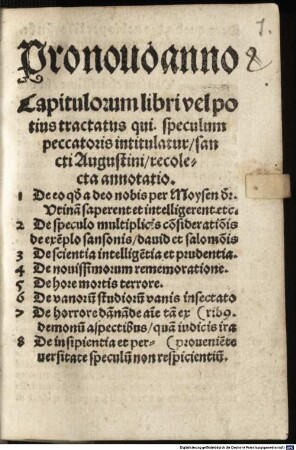 1.
Pro nouo anno
8
Capitulorum libri vel po
tius tractatus qui. speculum
peccatoris intitulatur/san
cti Augustini/recole-
cta annotatio.
1 De eo qđ a deo nobis per Moysen dr̄.
Vtinā saperent et intelligerent.etc.
2 De speculo multiplicis cōsideratiōis
de exēplo sansonis/dauid et salomōis
3 De scientia intelligētia et prudentia.
4 De nouissimorum rememoratione.
5 De hore mortis terrore.
6 De vanorū studiorū vanis insectato
7 De horrore dānāde aīe tā ex (rib9.
demonū aspectibus/quā iudicis ira
8 De insipientia et per- (proueniēte
uersitate speculū non respicientiū.